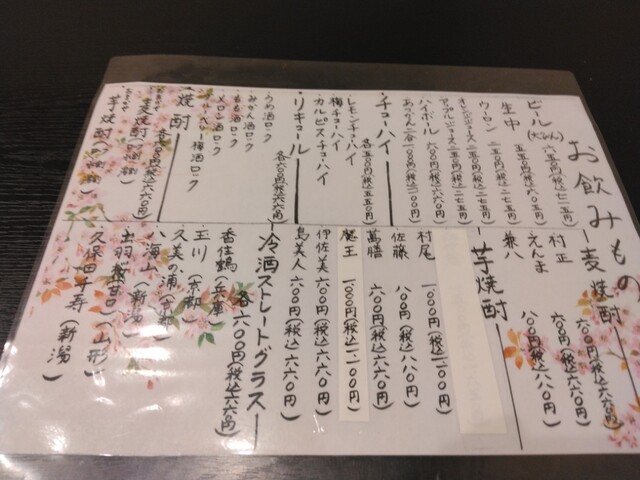 お飲みもの
ビール(大びん) 六五〇円(税込七一五円)
生中 五五〇円(税込六〇五円)
ウーロン 二五〇円(税込二七五円)
オレンジジュース 二五〇円(税込二七五円)
アップルジュース 二五〇円(税込二七五円)
ハイボール 六〇〇円(税込六六〇円)
あつかん二合 一、〇〇〇円(税込一、一〇〇円)
・チューハイ
各五〇〇円(税込五五〇円)
レモンチューハイ
梅チューハイ
カルピスチューハイ
・リキュール
各六〇〇円(税込六六〇円)
うめ酒ロック
みかん酒ロック
もも酒ロック
メロン酒ロック
ブルーベリー梅酒ロック
・焼酎
各六〇〇円(税込六六〇円)
麦焼酎
芋焼酎
麦焼酎
村正 六〇〇円(税込六六〇円)
えんま 六〇〇円(税込六六〇円)
兼八 八〇〇円(税込八八〇円)
芋焼酎
村尾 一、〇〇〇円(税込一、一〇〇円)
佐藤 八〇〇円(税込八八〇円)
萬膳 六〇〇円(税込六六〇円)
魔王 一、〇〇〇円(税込一、一〇〇円)
伊佐美 六〇〇円(税込六六〇円)
島美人 六〇〇円(税込六六〇円)
冷酒ストレートグラス
各六〇〇円(税込六六〇円)
香住鶴(兵庫)
玉川(京都)
久美の浦(京都)
八海山(新潟)
出羽桜(山形)
久保田千寿(新潟)